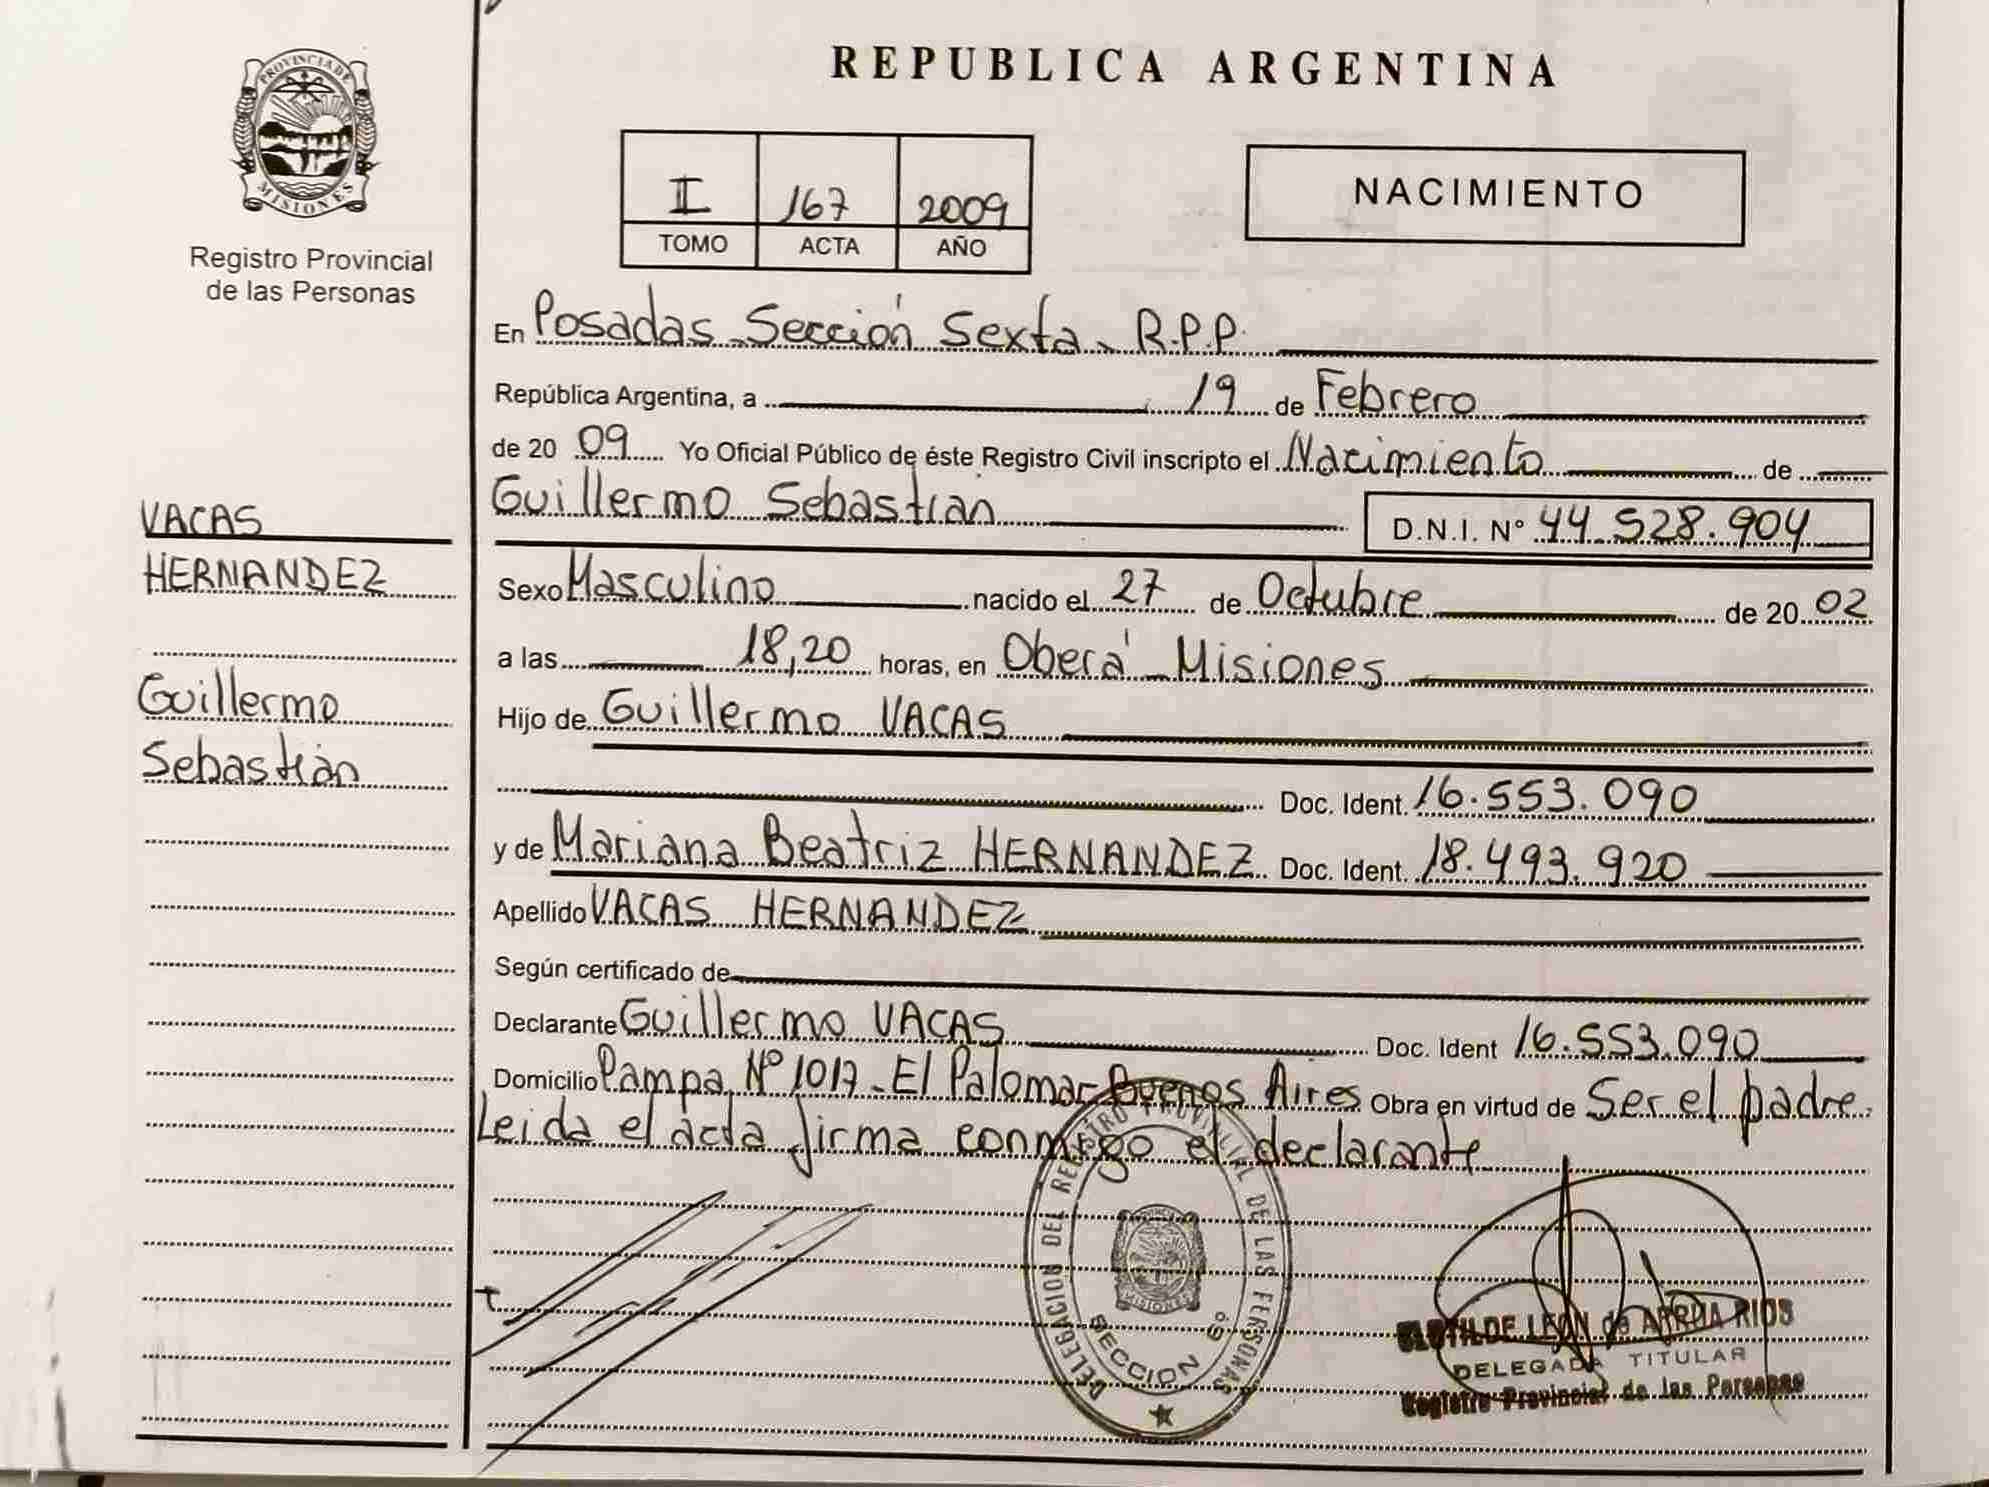 PROVINCIA DE
MISIONES
Registro Provincial
de las Personas
VACAS
HERNANDEZ
Guillermo
Sebastián
REPUBLICA ARGENTINA
I 167 2009
TOMO ACTA AÑO
NACIMIENTO
En Posadas - Sección Sexta - R.P.P.
República Argentina, a 19 de Febrero
de 2009 Yo Oficial Público de éste Registro Civil inscripto el Nacimiento de
Guillermo Sebastián D.N.I. Nº 44.528.904
Sexo Masculino nacido el 27 de Octubre de 2002
a las 18,20 horas, en Oberá - Misiones
Hijo de Guillermo VACAS
Doc. Ident. 16.553.090
y de Mariana Beatriz HERNANDEZ Doc. Ident. 18.493.920
Apellido VACAS HERNANDEZ
Según certificado de
Declarante Guillermo VACAS Doc. Ident 16.553.090
Domicilio Pampa Nº 1017 - El Palomar Buenos Aires Obra en virtud de Ser el padre.
Leida el acta firma conmigo el declarante
DELEGACION DEL REGISTRO PROVINCIAL DE LAS PERSONAS
MISIONES
SECCION 6º
CLOTILDE LEON de ARRUA RIOS
DELEGADA TITULAR
Registro Provincial de las Personas